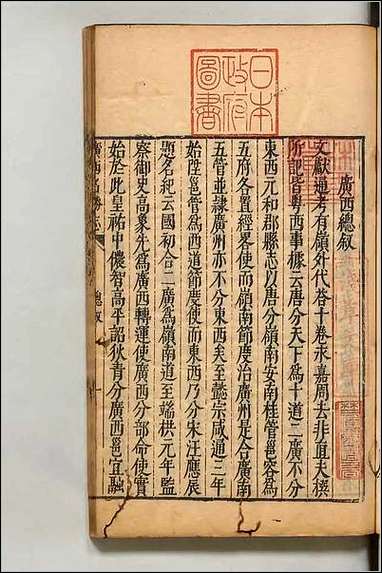 日本
政府
圖書
廣西總敘
文獻通考有嶺外代答十卷永嘉周去非直夫撰
所記皆粵西事據云唐分天下為十道二廣不分
東西元和郡縣志以唐分嶺南安南桂管邕容為
五府各置經畧使而嶺南節度治廣州是合廣南
五管並隸廣州亦不分東西矣至懿宗咸通三年
始陞邕管為西道節度使而東西乃分宋汪應展
題名紀云國初合二廣為嶺南道至端拱元年監
察御史高象先為廣西轉運使廣西分部命使實
始於此皇祐中儂智高平詔狄青分廣西邕宜融
廣西名勝志
總敘
一